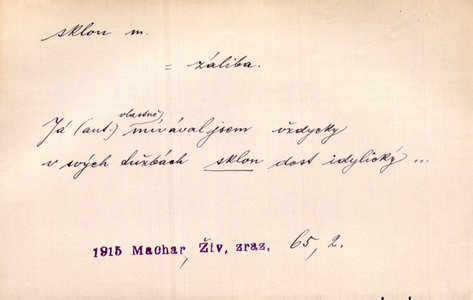 sklon m.
= záliba.
vlastně
Já (aut.) mívával jsem vždycky
v svých tužbách sklon dost idylický ...
1915 Machar, Živ, zraz, 65, 2.